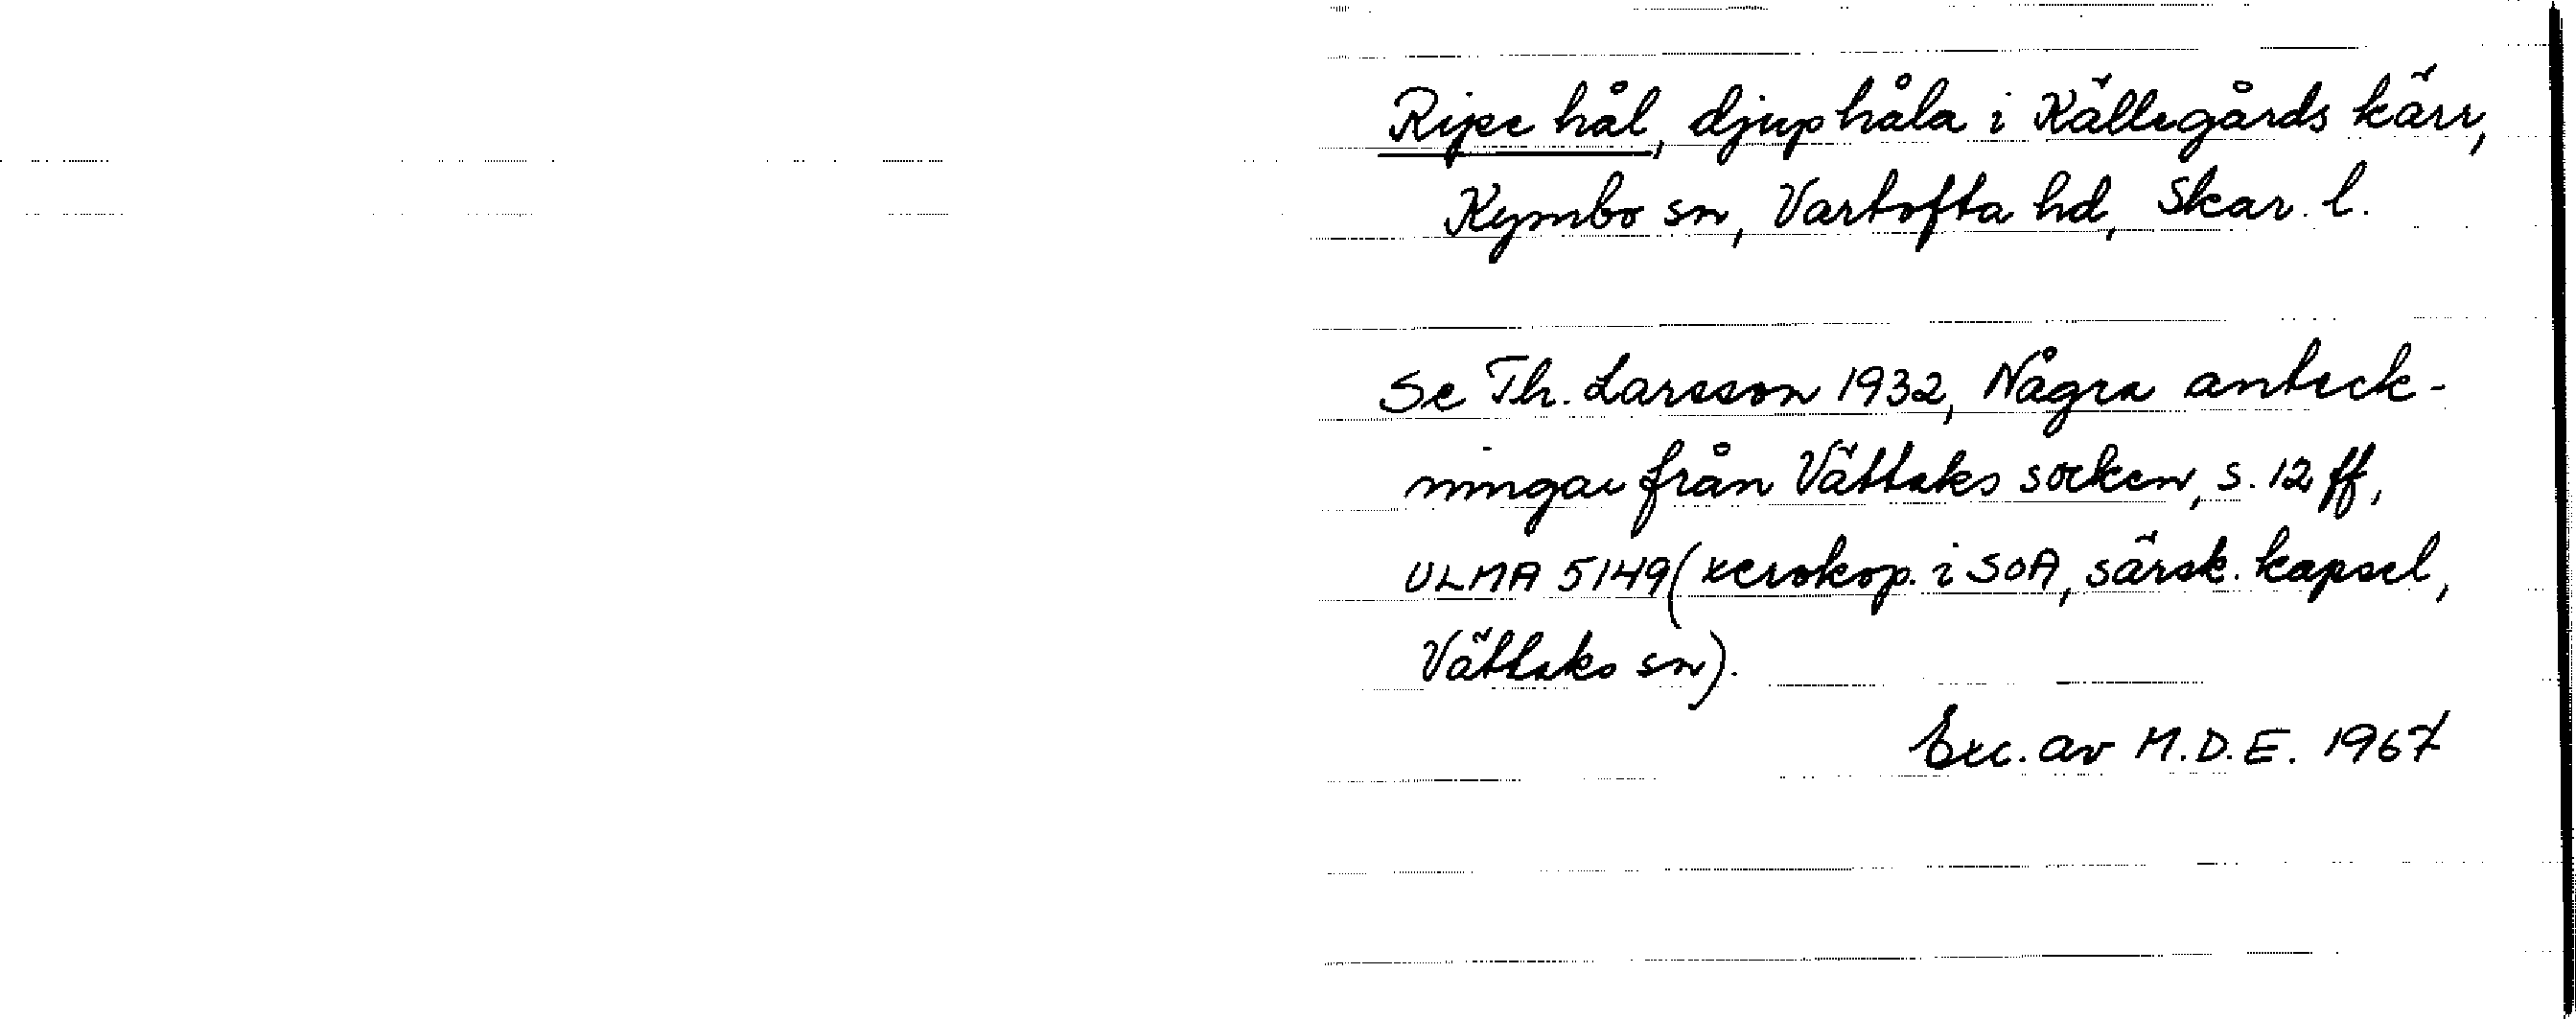 Ripe hål, djuphåla i Källegårds kärr,
Kymbo sn, Vartofta hd, Skar. l.
Se Th. Larsson 1932, Några anteck-
ningar från Vättaks socken, s. 12 ff,
ULMA 5149 (xerokop. i SOA, särsk. kapsel,
Vättaks sn).
Exc. av M.D.E. 1967